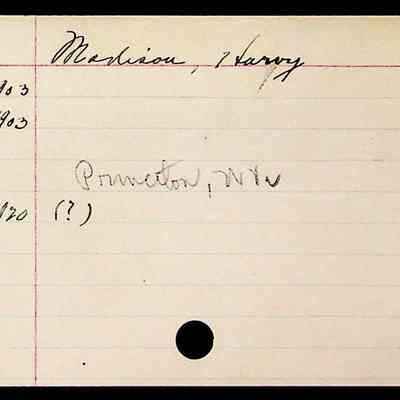 Madison, Harvy
903
903
Princeton, W Va
920 (?)